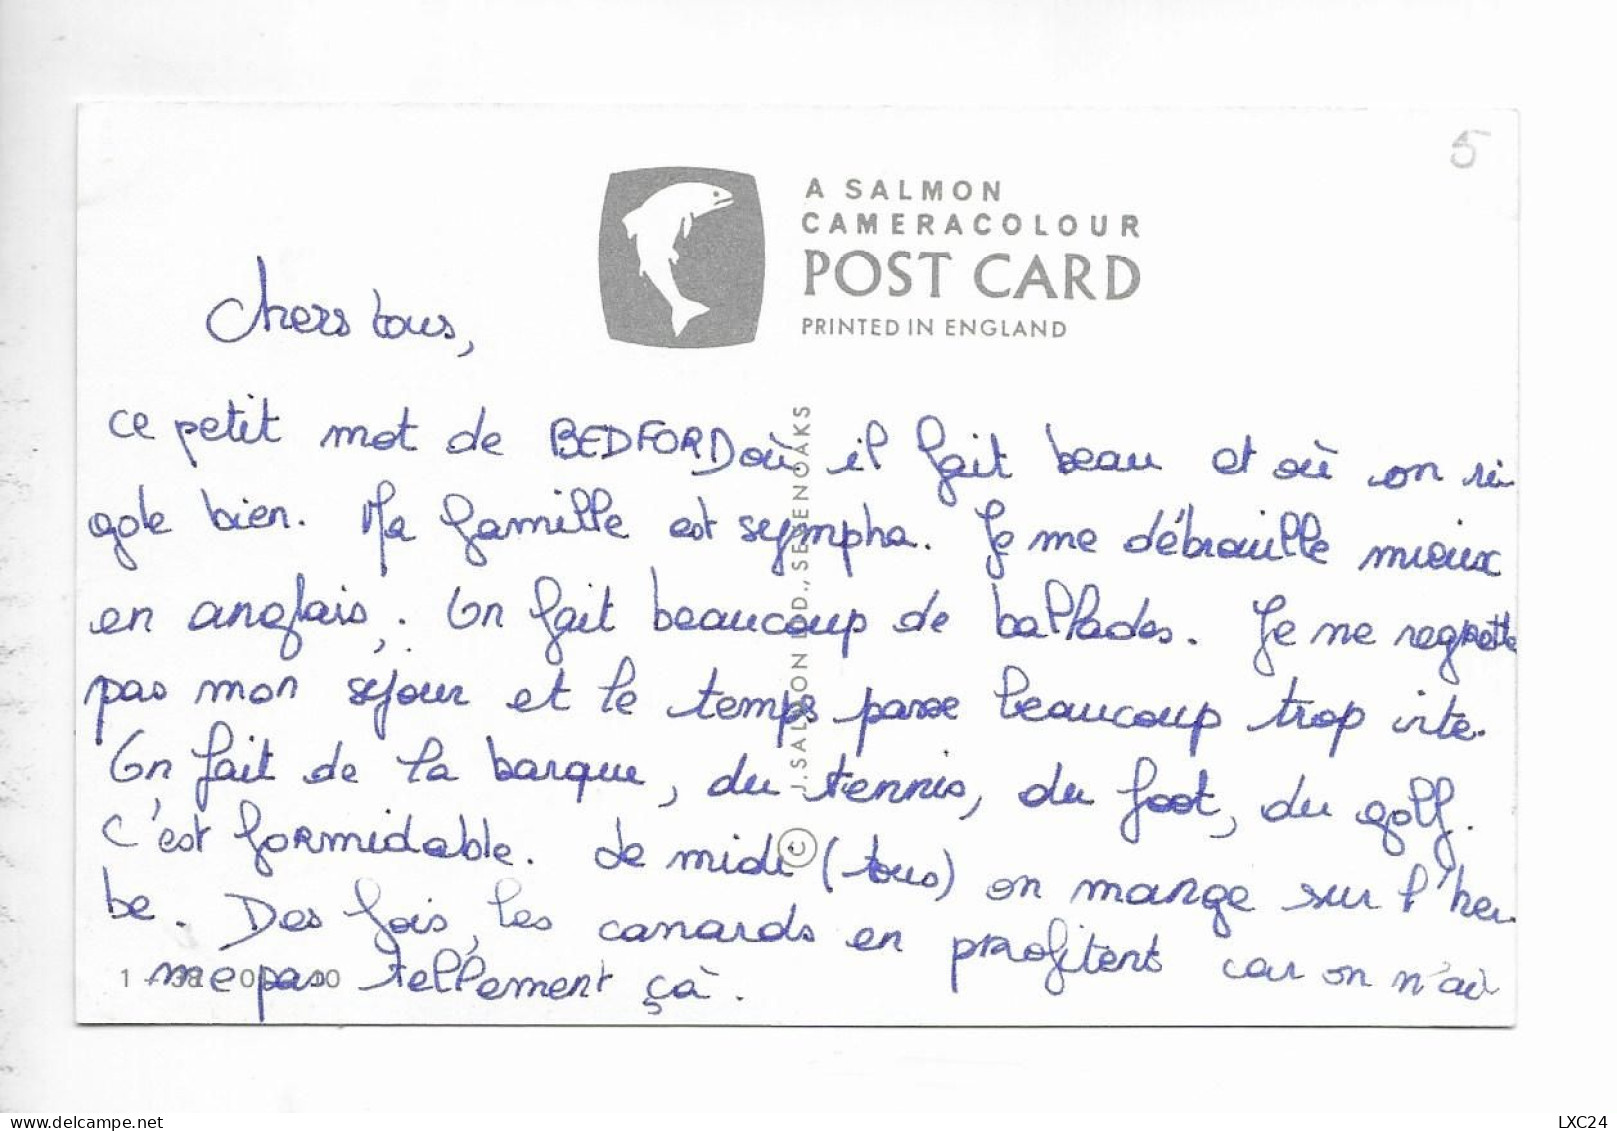 5
A SALMON
CAMERACOLOUR
POST CARD
PRINTED IN ENGLAND
Chers tous,
ce petit mot de BEDFORD où il fait beau et où on ri-
gole bien. Ma famille est sympha. Je me débrouille mieux
en anglais. On fait beaucoup de ballades. Je ne regrette
pas mon séjour et le temps passe beaucoup trop vite.
On fait de la barque, du tennis, du foot, du golf.
C'est formidable. Le midi (tous) on mange sur l'her-
be. Des fois, les canards en profitent car on n'ai-
me pas tellement çà.
J. SALMON LTD., SEVENOAKS
©
LXC24